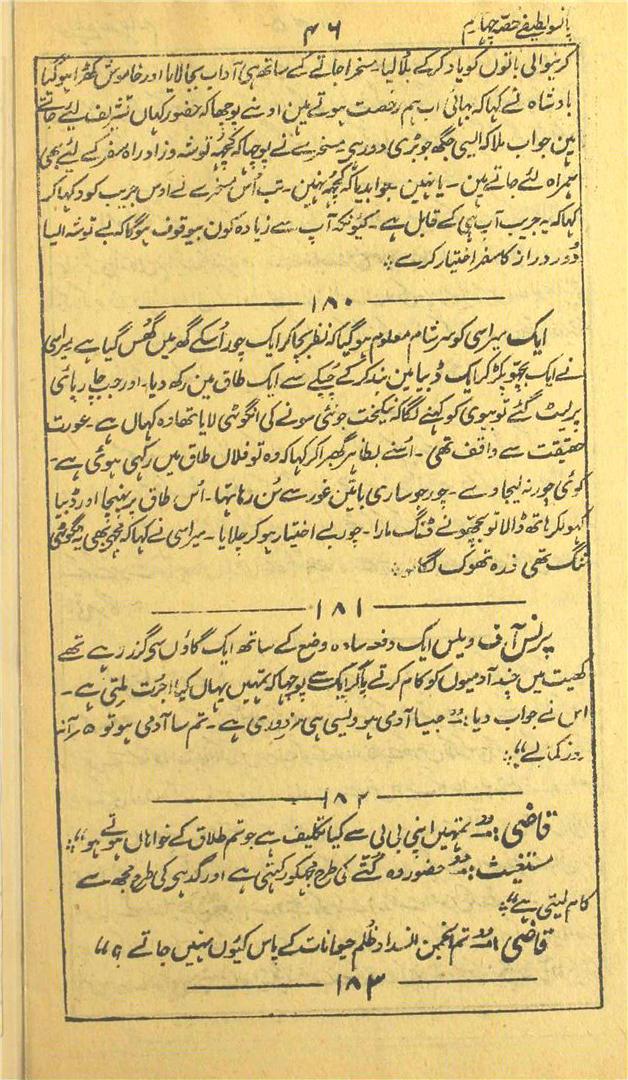 پانسو لطیفے حصہ چہارم
۴۶
کرنیوالی باتوں کو یاد کر کے بلا لیا۔ مسخرا جاتے کے ساتھ ہی آداب بجا لایا اور خاموش کھڑا ہو گیا
بادشاہ نے کہا کہ بھائی اب ہم رخصت ہوتے ہین اوسنے پوچھا کہ حضور کہاں تشریف لیئے جاتے
ہین جواب ملا کہ ایسی جگھ جو بڑی دور ہی مسخرے نے پوچھا کہ کچھہ توشہ و زاد راہ سفر کے لیئے بھی
ہمراہ لئے جاتے ہین۔ یا نہین۔ جوابدیا کہ کچھہ نہین۔ تب اُس مسخرے نے اوس جریب کو دکہا کر
کہا کہ یہ جریب آپ ہی کے قابل ہے۔ کیونکہ آپ سے زیادہ کون بیوقوف ہوگا کہ بے توشہ ایسا
دُور دراز کا سفر اختیار کرے ؞
۱۸۰
ایک میراسی کو سر شام معلوم ہو گیا کہ نظر بچا کر ایک چور اُسکے گھر میں گھُس گیا ہے میراسی
نے ایک بچھو پکڑ کر ایک ڈبیا مین بند کر کے چپکے سے ایک طاق مین رکھ دیا۔ اور جب چارپائی
پر لیٹ گئے تو بیوی کو کہنے لگا کہ نیکبخت جوئی سونے کی انگوٹھی لایا تھا وہ کہاں ہے۔ عورت
حقیقت سے واقف تھی۔ اُسنے بظاہر گھبرا کر کہا کہ وہ تو فلاں طاق میں رکہی ہوئی ہے۔
کوئی چور نہ لیجاوے۔ چور جو ساری باتین غور سے سُن رہا تہا۔ اُس طاق پر پہنچا اور ڈبیا
کہولکر ہاتھ ڈالا تو بچھو نے ڈنگ مارا۔ چور بے اختیار ہو کر چلایا۔ میراسی نے کہا کہ مجھے بھی یہ انگوٹھی
تنگ تھی ذرہ تھوک لگا لو ؞
۱۸۱
پرنس آف ویلس ایک دفعہ سادہ وضع کے ساتھ ایک گاؤں سی گزر رہے تھے
کھیت میں چند آدمیوں کو کام کرتے پا کر ایک سے پوچہا کہ تمہیں یہاں کیا اجرت ملتی ہے۔
اس نے جواب دیا :۔ جیسا آدمی ہو ویسی ہی مزدوری ہے۔ تم سا آدمی ہو تو ۵ر آنہ
روز کمالے“ ؞
۱۸۲
قاضی :۔ ”تمہیں اپنی بی بی سے کیا تکلیف ہے جو تم طلاق کے خواہاں ہوتے ہو“ ؞
مستغیث :۔ ”حضور وہ کتّے کی طرح مجہکو رکہتی ہے اور گدہی کی طرح مجھ سے
کام لیتی ہے“ ؞
قاضی :۔ ”تم انجمن انسداد ظُلم حیوانات کے پاس کیوں نہیں جاتے ؟“
۱۸۳